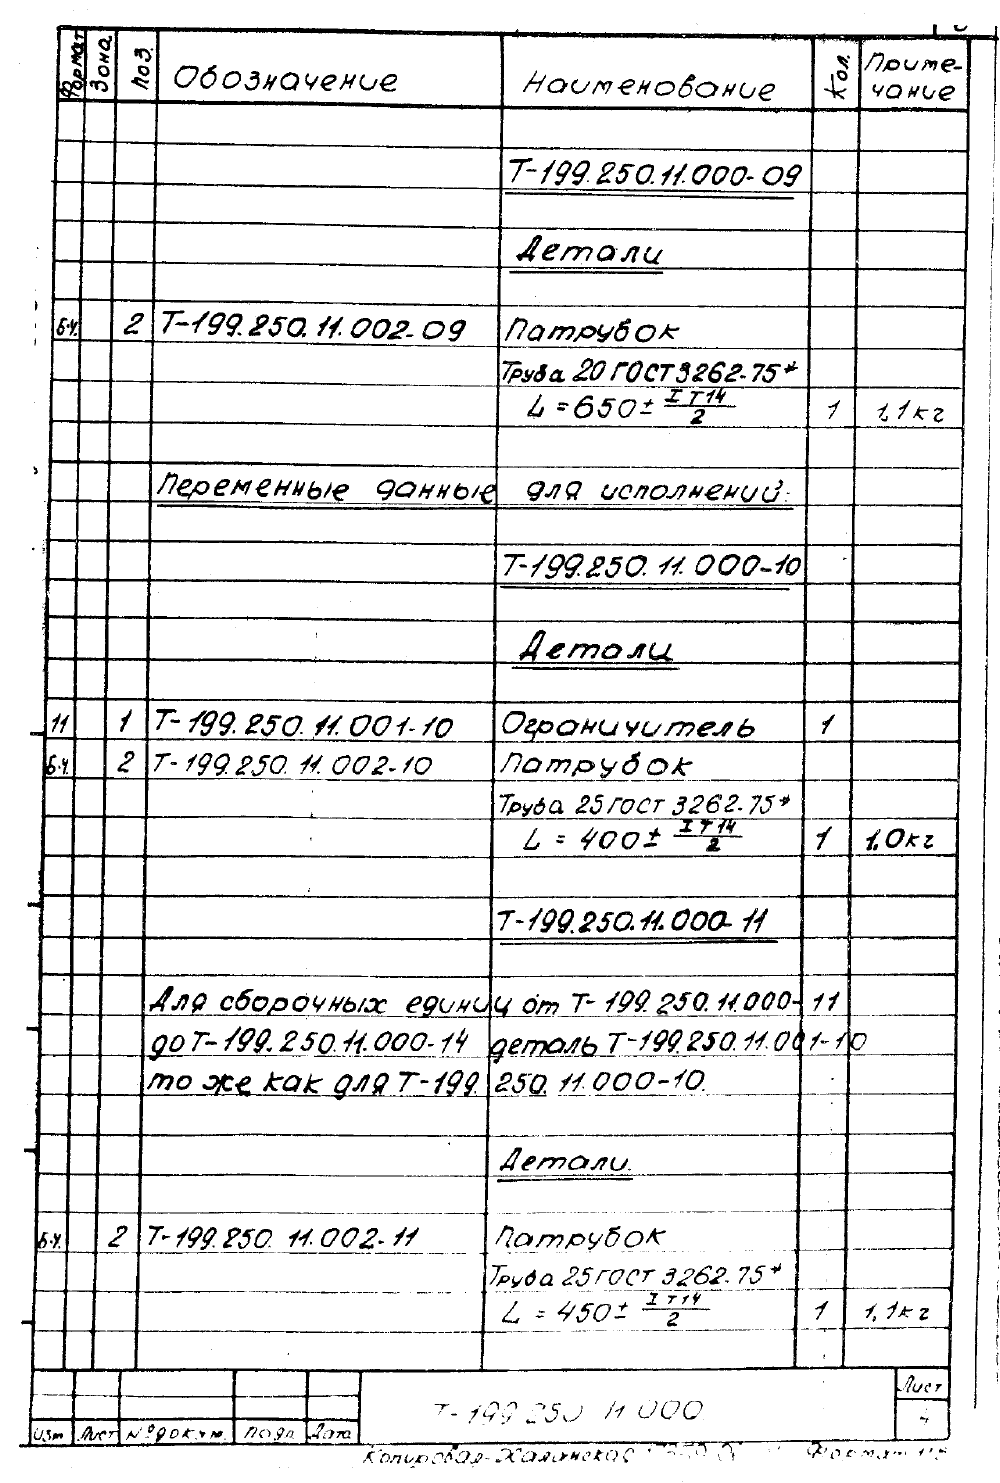 Формат Зона Поз. Обозначение Наименование Кол. Приме-
чание
Т-199.250.11.000-09
Детали
Б.Ч. 2 Т-199.250.11.002-09 Патрубок
Труба 20 ГОСТ 3262-75*
L = 650 ± IT14/2 1 1,1 кг
Переменные данные для исполнений:
Т-199.250.11.000-10
Детали
11 1 Т-199.250.11.001-10 Ограничитель 1
Б.Ч. 2 Т-199.250.11.002-10 Патрубок
Труба 25 ГОСТ 3262-75*
L = 400 ± IT14/2 1 1,0 кг
Т-199.250.11.000-11
Для сборочных единиц от Т-199.250.11.000-11
до Т-199.250.11.000-14 деталь Т-199.250.11.001-10
то же как для Т-199.250.11.000-10.
Детали.
Б.Ч. 2 Т-199.250.11.002-11 Патрубок
Труба 25 ГОСТ 3262-75*
L = 450 ± IT14/2 1 1,1 кг
Т-199.250.11.000
Лист
4
Изм Лист № докум. Подп. Дата
Копировал- Формат